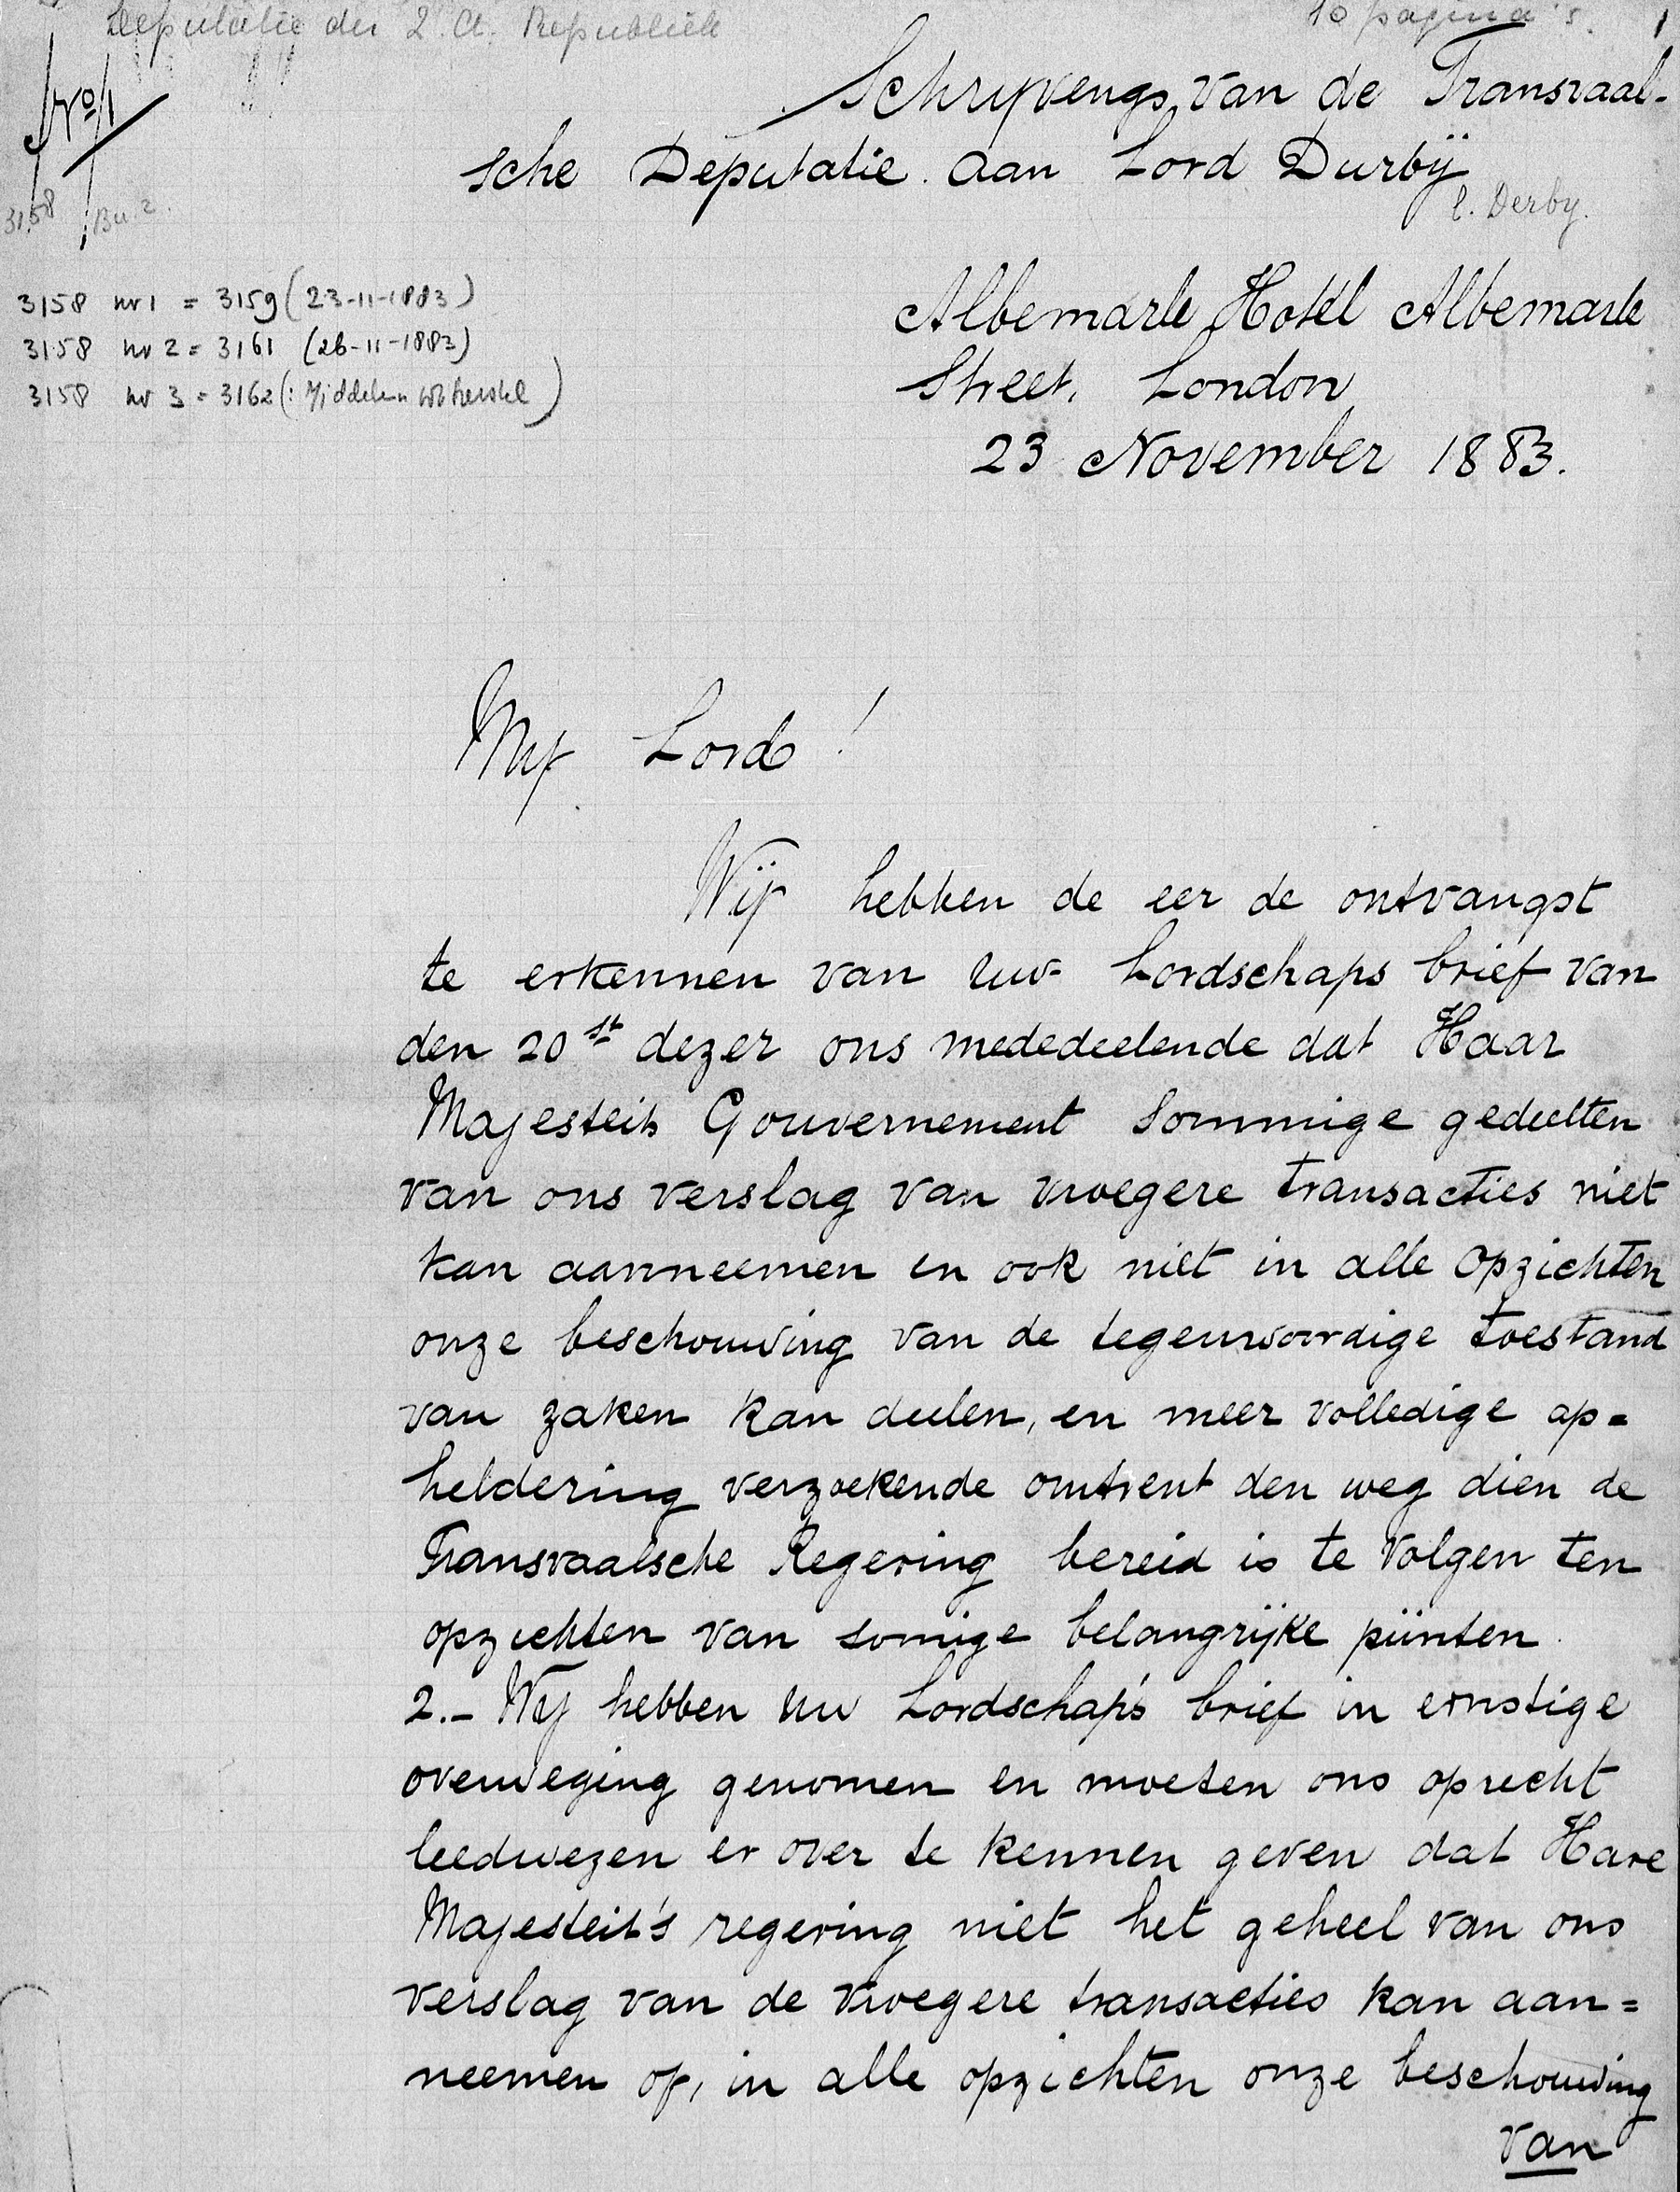 Deputatie der Z. A. Republiek
10 pagina's. 1
No 1
Schryvengs van de Transvaal-
sche Deputatie aan Lord Durbÿ
l. Derby.
3158 Bu. 2.
Albemarle Hotel Albemarle
Street, London
23 November 1883.
3158 nr 1 = 3159 (23-11-1883)
3158 nr 2 = 3161 (26-11-1883)
3158 nr 3 = 3162 (:
My Lord!
Wÿ hebben de eer de ontvangst
te erkennen van uw Lordschaps brief van
den 20st dezer ons mededeelende dat Haar
Majesteits Gouvernement sommige gedeelten
van ons verslag van vroegere transacties niet
kan aanneemen en ook niet in alle opzichten
onze beschouwing van de tegenwoordige toestand
van zaken kan deelen, en meer volledige op=
heldering verzoekende omtrent den weg dien de
Transvaalsche Regering bereid is te volgen ten
opzichten van somige belangrijke punten
2.- Wy hebben Uw Lordschap's brief in ernstige
overweging genomen en moeten ons oprecht
leedwezen er over te kennen geven dat Hare
Majesteit's regering niet het geheel van ons
verslag van de vroegere transacties kan aan=
neemen of, in alle opzichten onze beschouwing
van